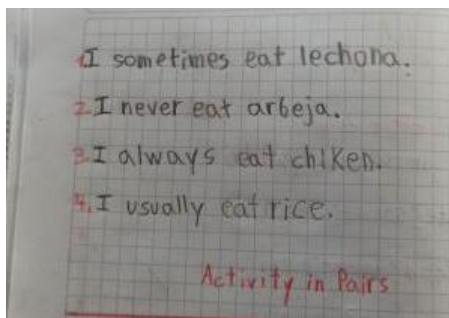 1. I sometimes eat lechona.
2. I never eat arbeja.
3. I always eat chiken.
4. I usually eat rice.
Activity in Pairs